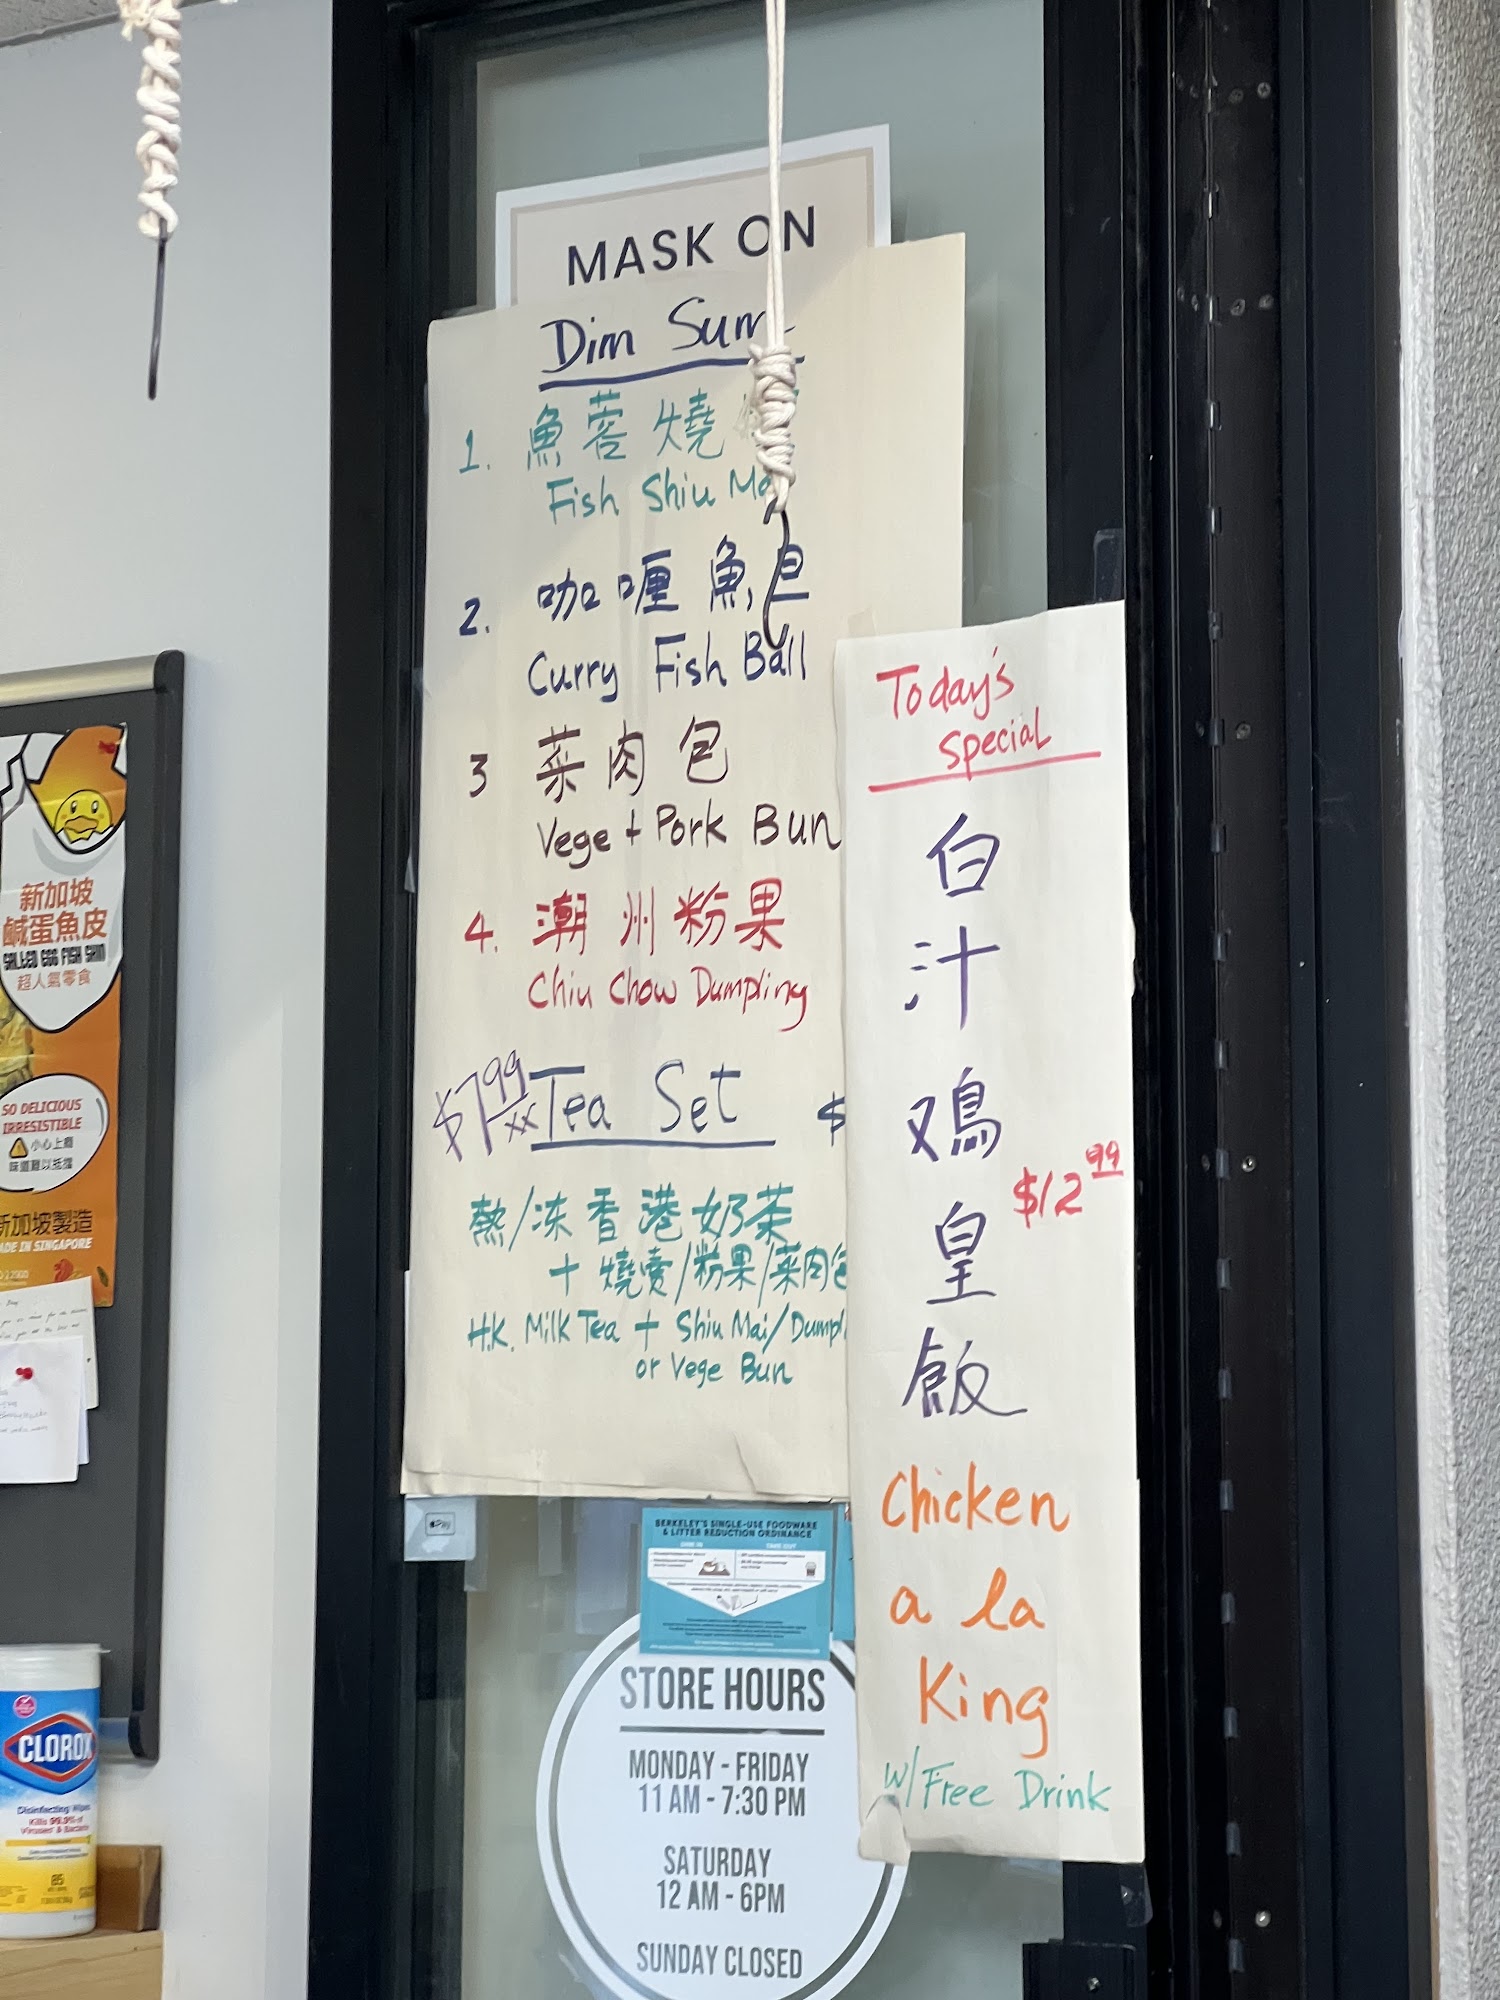 MASK ON
Dim Sum
1. 魚蓉燒
Fish Shiu Mai
2. 咖喱魚旦
Curry Fish Ball
3 菜肉包
Vege + Pork Bun
4. 潮州粉果
Chiu Chow Dumpling
$7.99 Tea Set $
熱/冻香港奶茶
+ 燒賣/粉果/菜肉包
H.K. Milk Tea + Shiu Mai/Dumpl
or Vege Bun
Today's
Special
白
汁
鸡
皇
飯
$12.99
Chicken
a la
King
w/Free Drink
Pay
BERKELEY'S SINGLE-USE FOODWARE
& LITTER REDUCTION ORDINANCE
DINE IN
TAKE OUT
STORE HOURS
MONDAY - FRIDAY
11 AM - 7:30 PM
SATURDAY
12 AM - 6PM
SUNDAY CLOSED
新加坡
鹹蛋魚皮
SALTED EGG FISH SKIN
超人氣零食
SO DELICIOUS
IRRESISTIBLE
小心上癮
味道難以抵擋
新加坡製造
MADE IN SINGAPORE
CLOROX
Disinfecting Wipes
Kills 99.9% of
Viruses & Bacteria
85